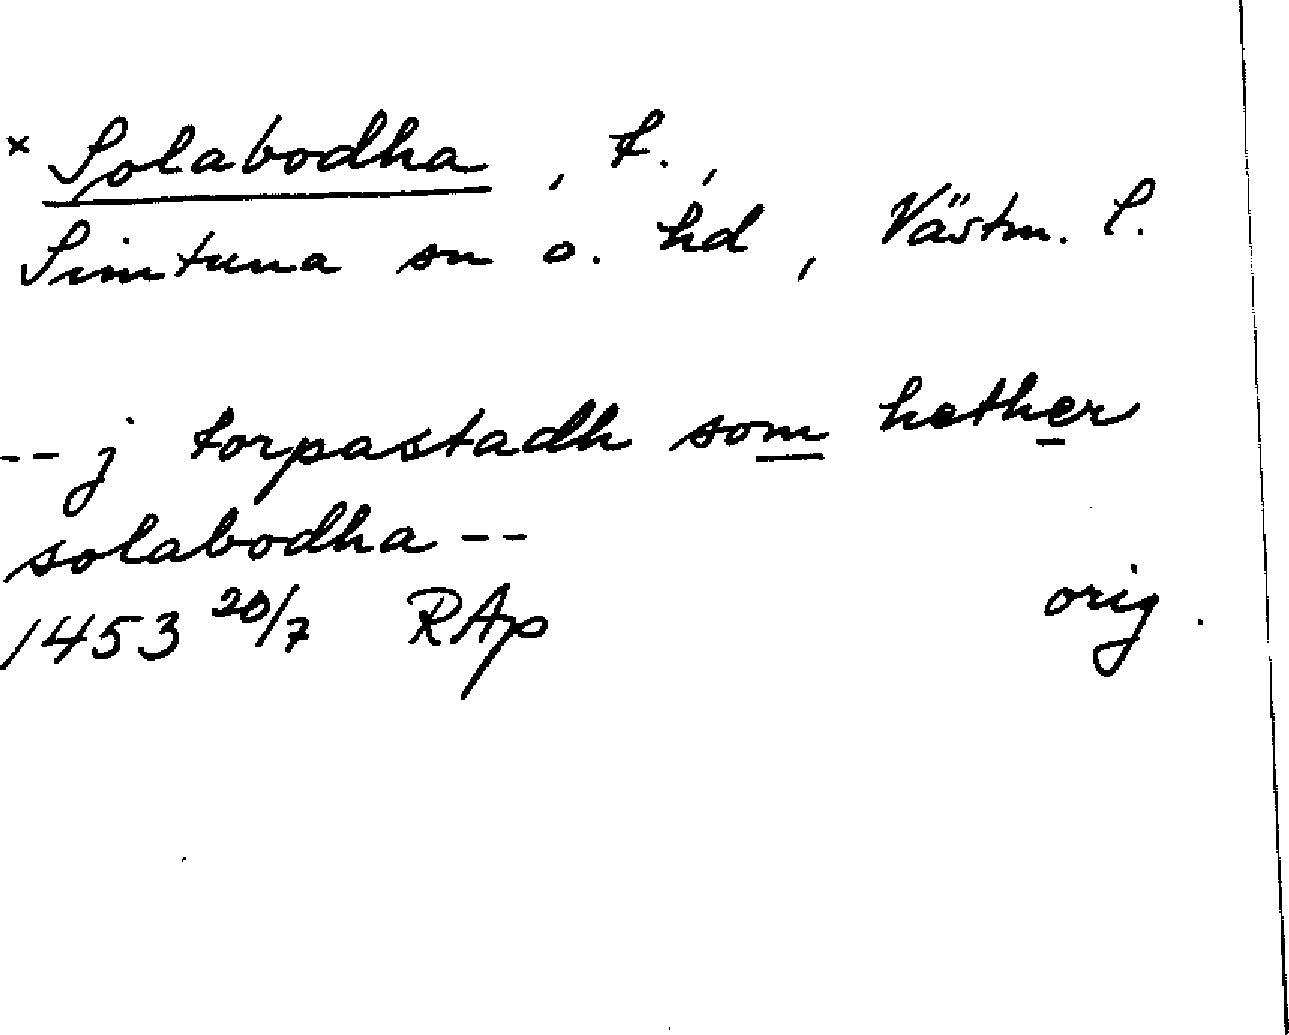 × Solabodha, t.,
Simtuna sn o. hd, Västm. l.
-- j torpastadh som hether
solabodha --
1453 20/7 RAp orig.